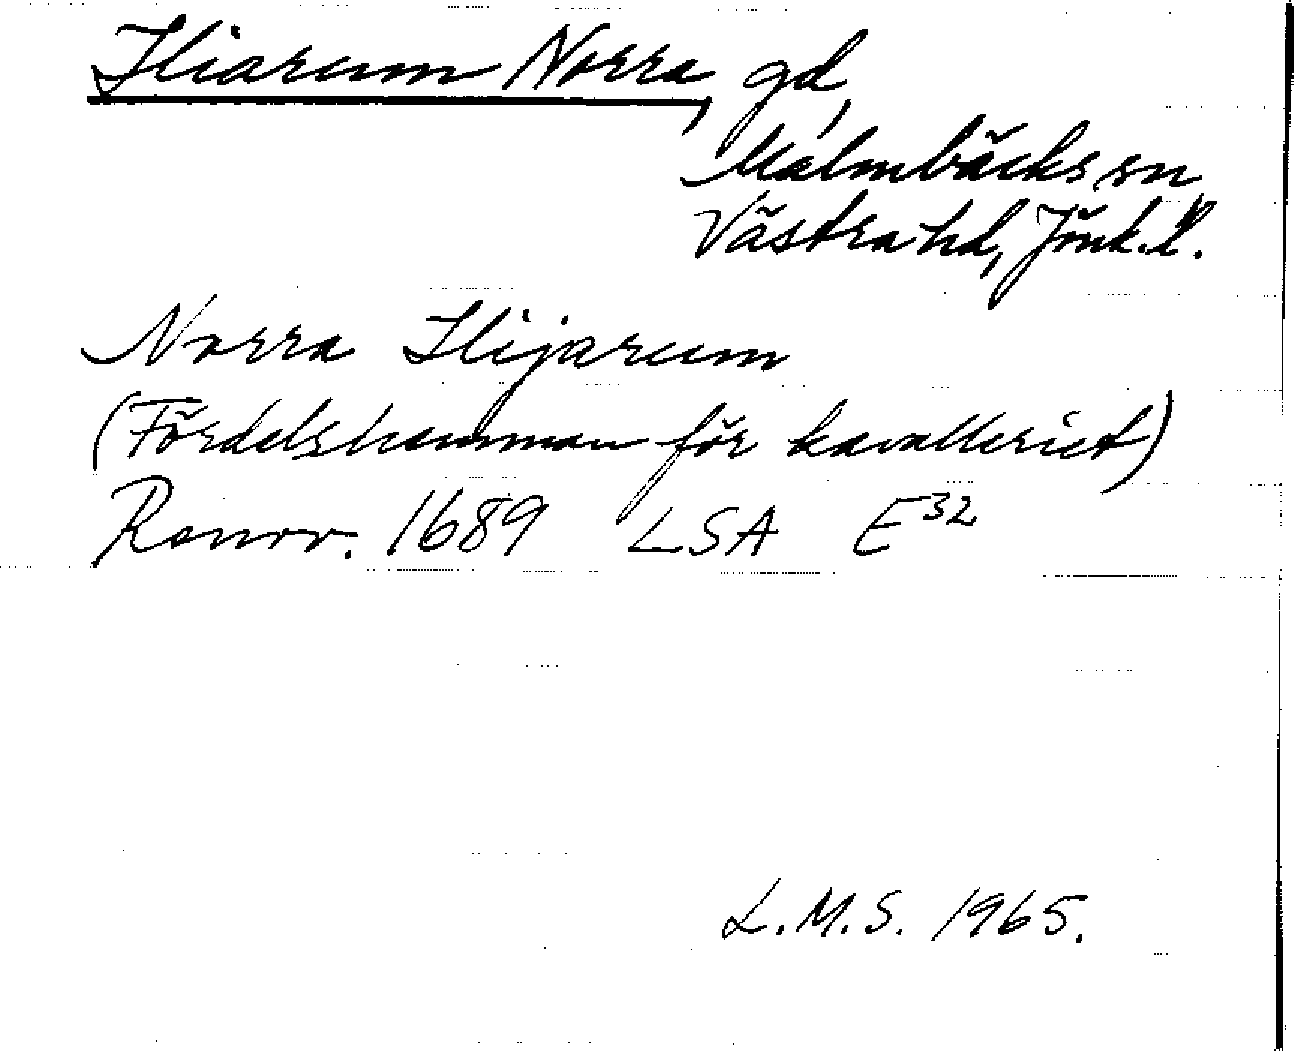 Iliarum Norra, gd,
Malmbäcks sn,
Västra hd, Jönk. l.
Norra Ilijarum
(Fördelshemman för kavalleriet)
Renov. 1689 LSA E32
L.M.S. 1965.